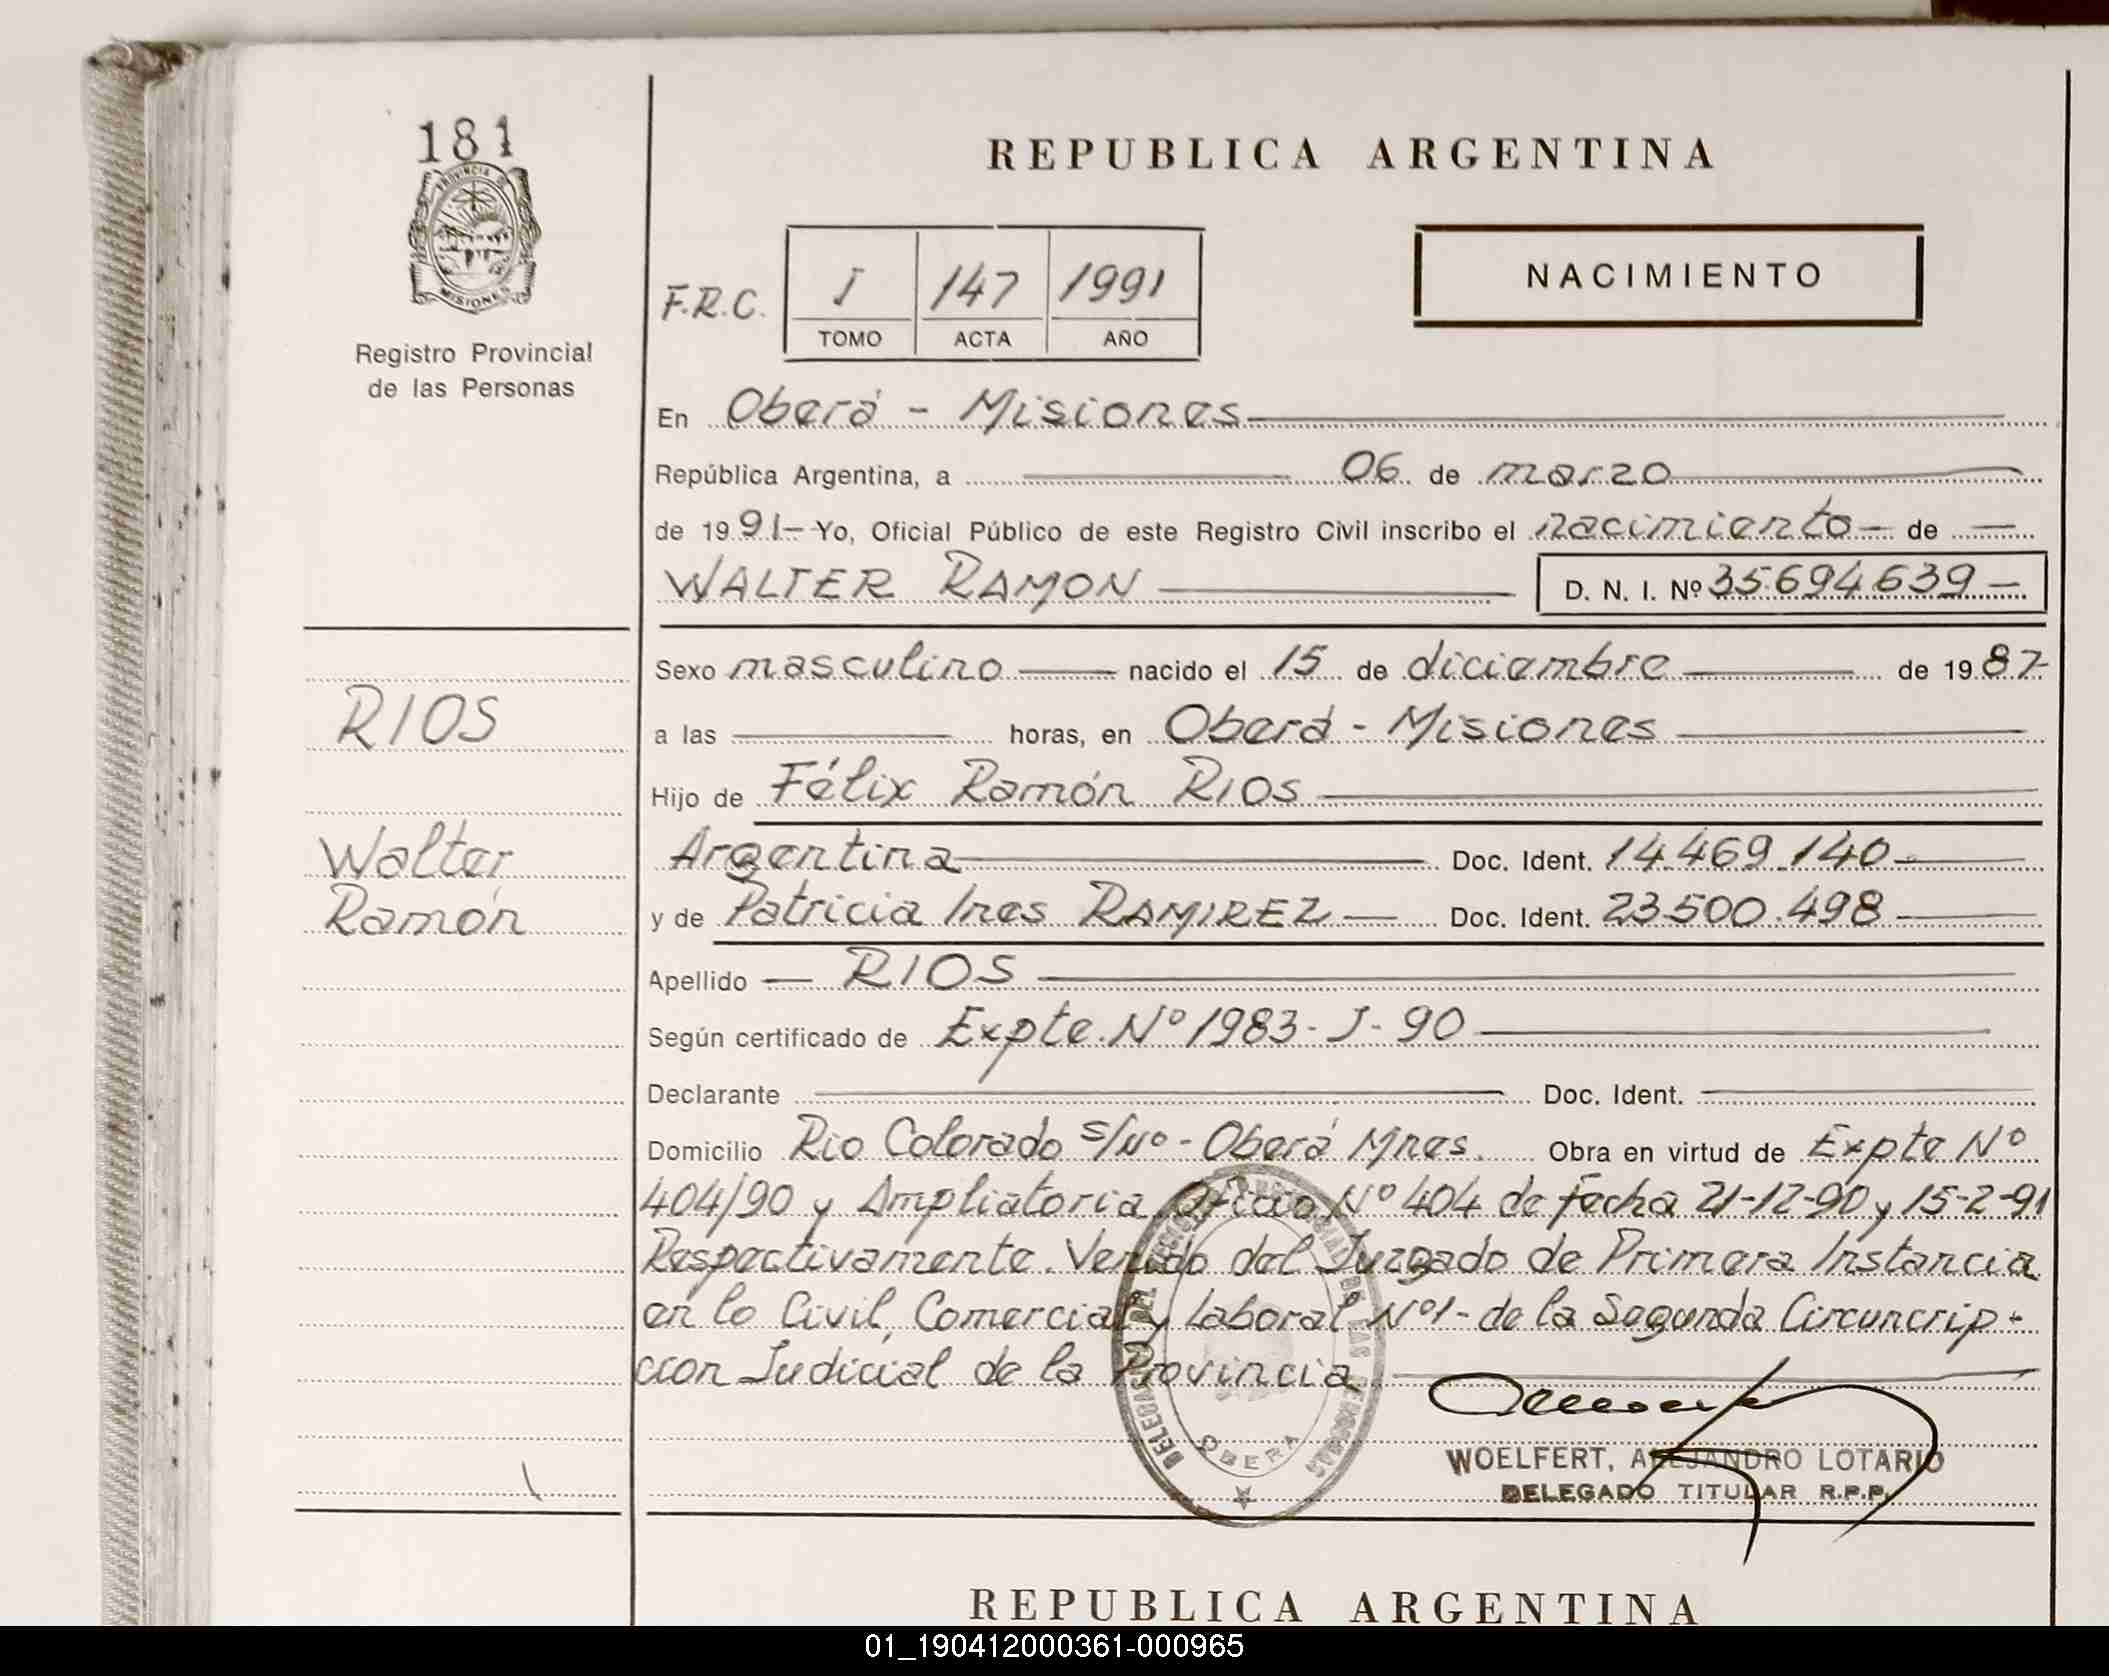 181
PROVINCIA DE
MISIONES
Registro Provincial
de las Personas
RIOS
Walter
Ramón
REPUBLICA ARGENTINA
F.R.C. I 147 1991
TOMO ACTA AÑO
NACIMIENTO
En Oberá - Misiones
República Argentina, a 06 de marzo
de 1991- Yo, Oficial Público de este Registro Civil inscribo el nacimiento - de
WALTER RAMON D. N. I. Nº 35.694.639
Sexo masculino nacido el 15 de diciembre de 1987
a las horas, en Oberá - Misiones
Hijo de Félix Ramón RIOS
Argentina Doc. Ident. 14.469.140
y de Patricia Ines RAMIREZ Doc. Ident. 23.500.498
Apellido RIOS
Según certificado de Expte. Nº 1983-J-90
Declarante Doc. Ident.
Domicilio Rio Colorado s/Nº - Oberá Mnes. Obra en virtud de Expte Nº
404/90 y Ampliatoria Oficio Nº 404 de fecha 21-12-90 y 15-2-91
Respectivamente. Venido del Juzgado de Primera Instancia
en lo Civil, Comercial y Laboral Nº1 - de la Segunda Circuncrip-
ccion Judicial de la Provincia
OBERA
WOELFERT, ALEJANDRO LOTARIO
DELEGADO TITULAR R.P.P.
REPUBLICA ARGENTINA
01_190412000361-000965